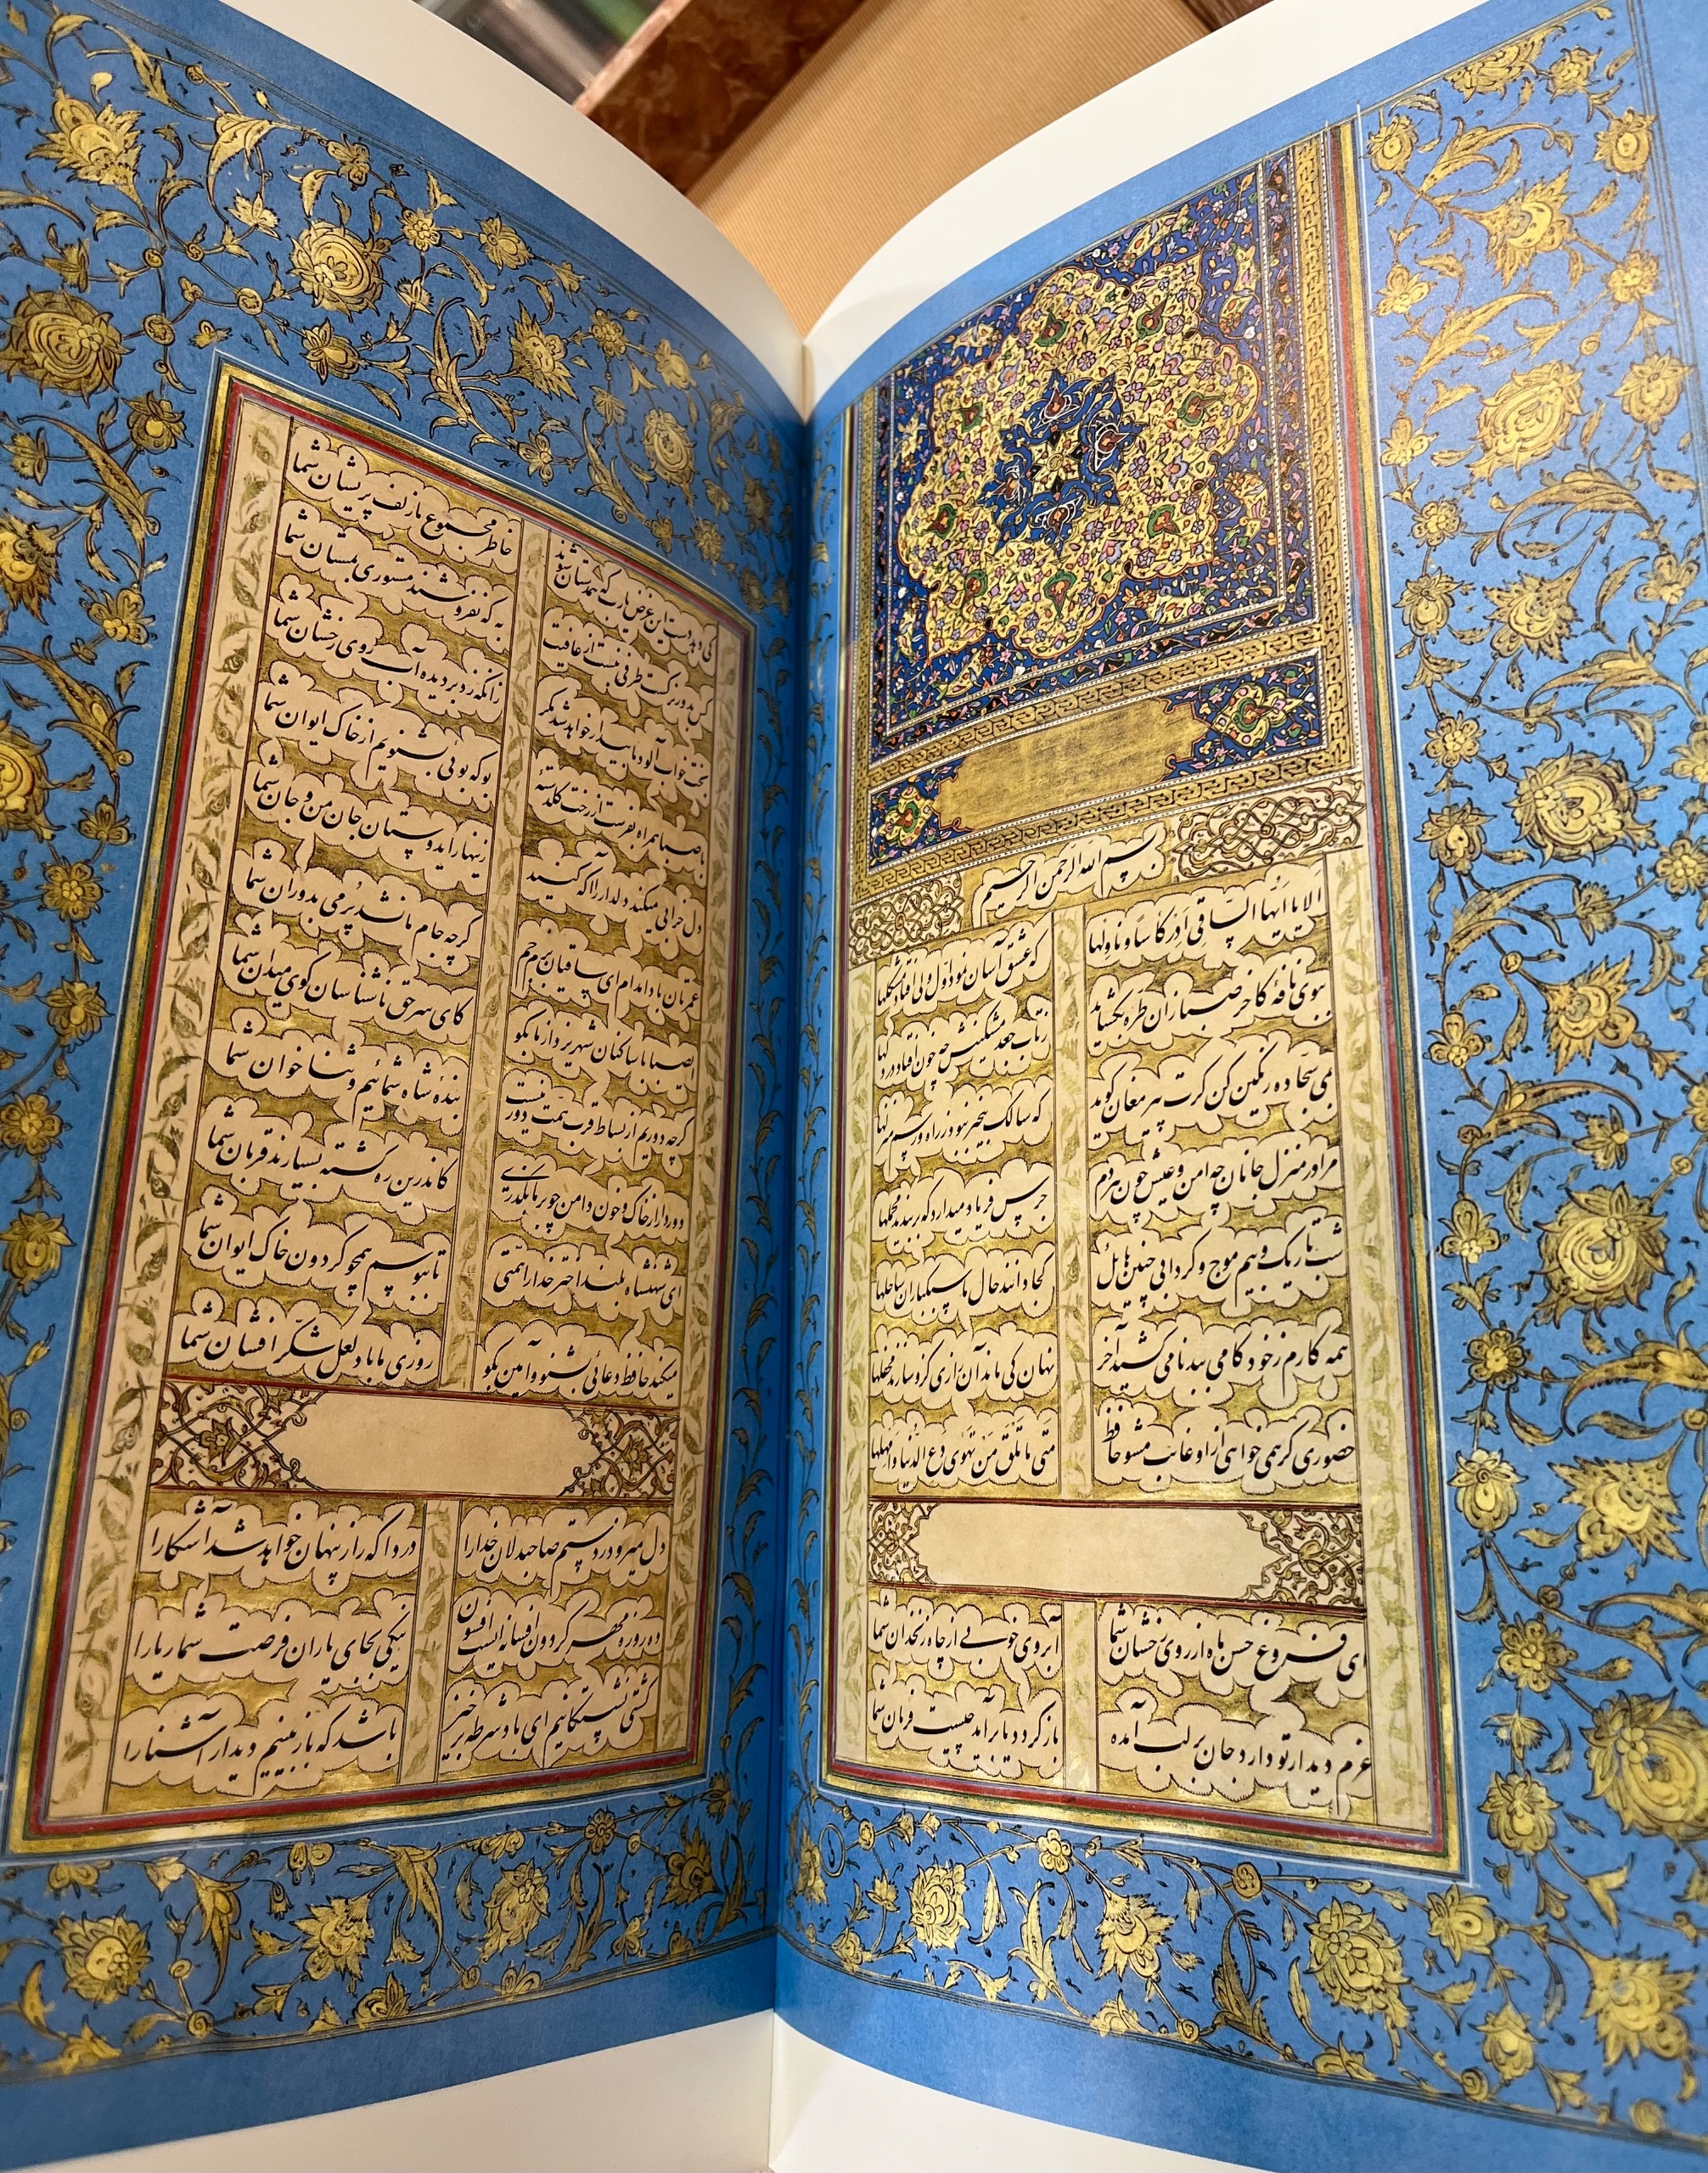 بسم الله الرحمن الرحیم
الا یا ایها الساقی ادر کأسا و ناولها که عشق آسان نمود اول ولی افتاد مشکلها
ببوی نافهٔ کاخر صبا زان طره بگشاید زتاب جعد مشکینش چه خون افتاد در دلها
بمی سجاده رنگین کن گرت پیر مغان گوید که سالک بیخبر نبود ز راه و رسم منزلها
مرا در منزل جانان چه امن و عیش چون هر دم جرس فریاد میدارد که بربندید محملها
شب تاریک و بیم موج و گردابی چنین هائل کجا دانند حال ما سبکباران ساحلها
همه کارم ز خود کامی ببدنامی کشید آخر نهان کی ماند آن رازی کزو سازند محفلها
حضوری گر همی خواهی ازاو غائب مشو حافظ متی ما تلق من تهوی دع الدنیا و اهملها
ای فروغ حسن ماه از روی رخشان شما آبروی خوبی از چاه زنخدان شما
عزم دیدار تو دارد جان بر لب آمده باز گردد یا برآید چیست فرمان شما
کی دهد دست این غرض یا رب که همدستان شوند خاطر مجموع ما زلف پریشان شما
کس بدور نرگست طرفی نبست از عافیت به که نفروشند مستوری بمستان شما
بخت خواب آلود ما بیدار خواهد شد مگر زانکه زد بر دیده آب روی رخشان شما
با صبا همراه بفرست از رخت گلدستهٔ بو که بوئی بشنویم از خاک ایوان شما
دل خرابی میکند دلدار را آگه کنید زینهار ایدوستان جان من و جان شما
عمرتان باد ا مدام ای ساقیان بزم جم گرچه جام ما نشد پر می بدوران شما
ای صبا با ساکنان شهر یزد از ما بگو کای سر حق ناشناسان گوی میدان شما
گرچه دوریم از بساط قرب همت دور نیست بندهٔ شاه شمائیم و ثنا خوان شما
دور دار از خاک و خون دامن چو بر ما بگذری کاندرین ره کشته بسیارند قربان شما
ای شهنشاه بلند اختر خدا را همتی تا ببوسم همچو گردون خاک ایوان شما
میکند حافظ دعائی بشنو و آمین بگو روزی ما باد لعل شکر افشان شما
دل میرود ز دستم صاحبدلان خدارا دردا که راز پنهان خواهد شد آشکارا
ده روزه مهر گردون افسانه ایست افسون نیکی بجای یاران فرصت شمار یارا
کشتی نشستگانیم ای باد شرطه برخیز باشد که باز بینیم دیدار آشنارا